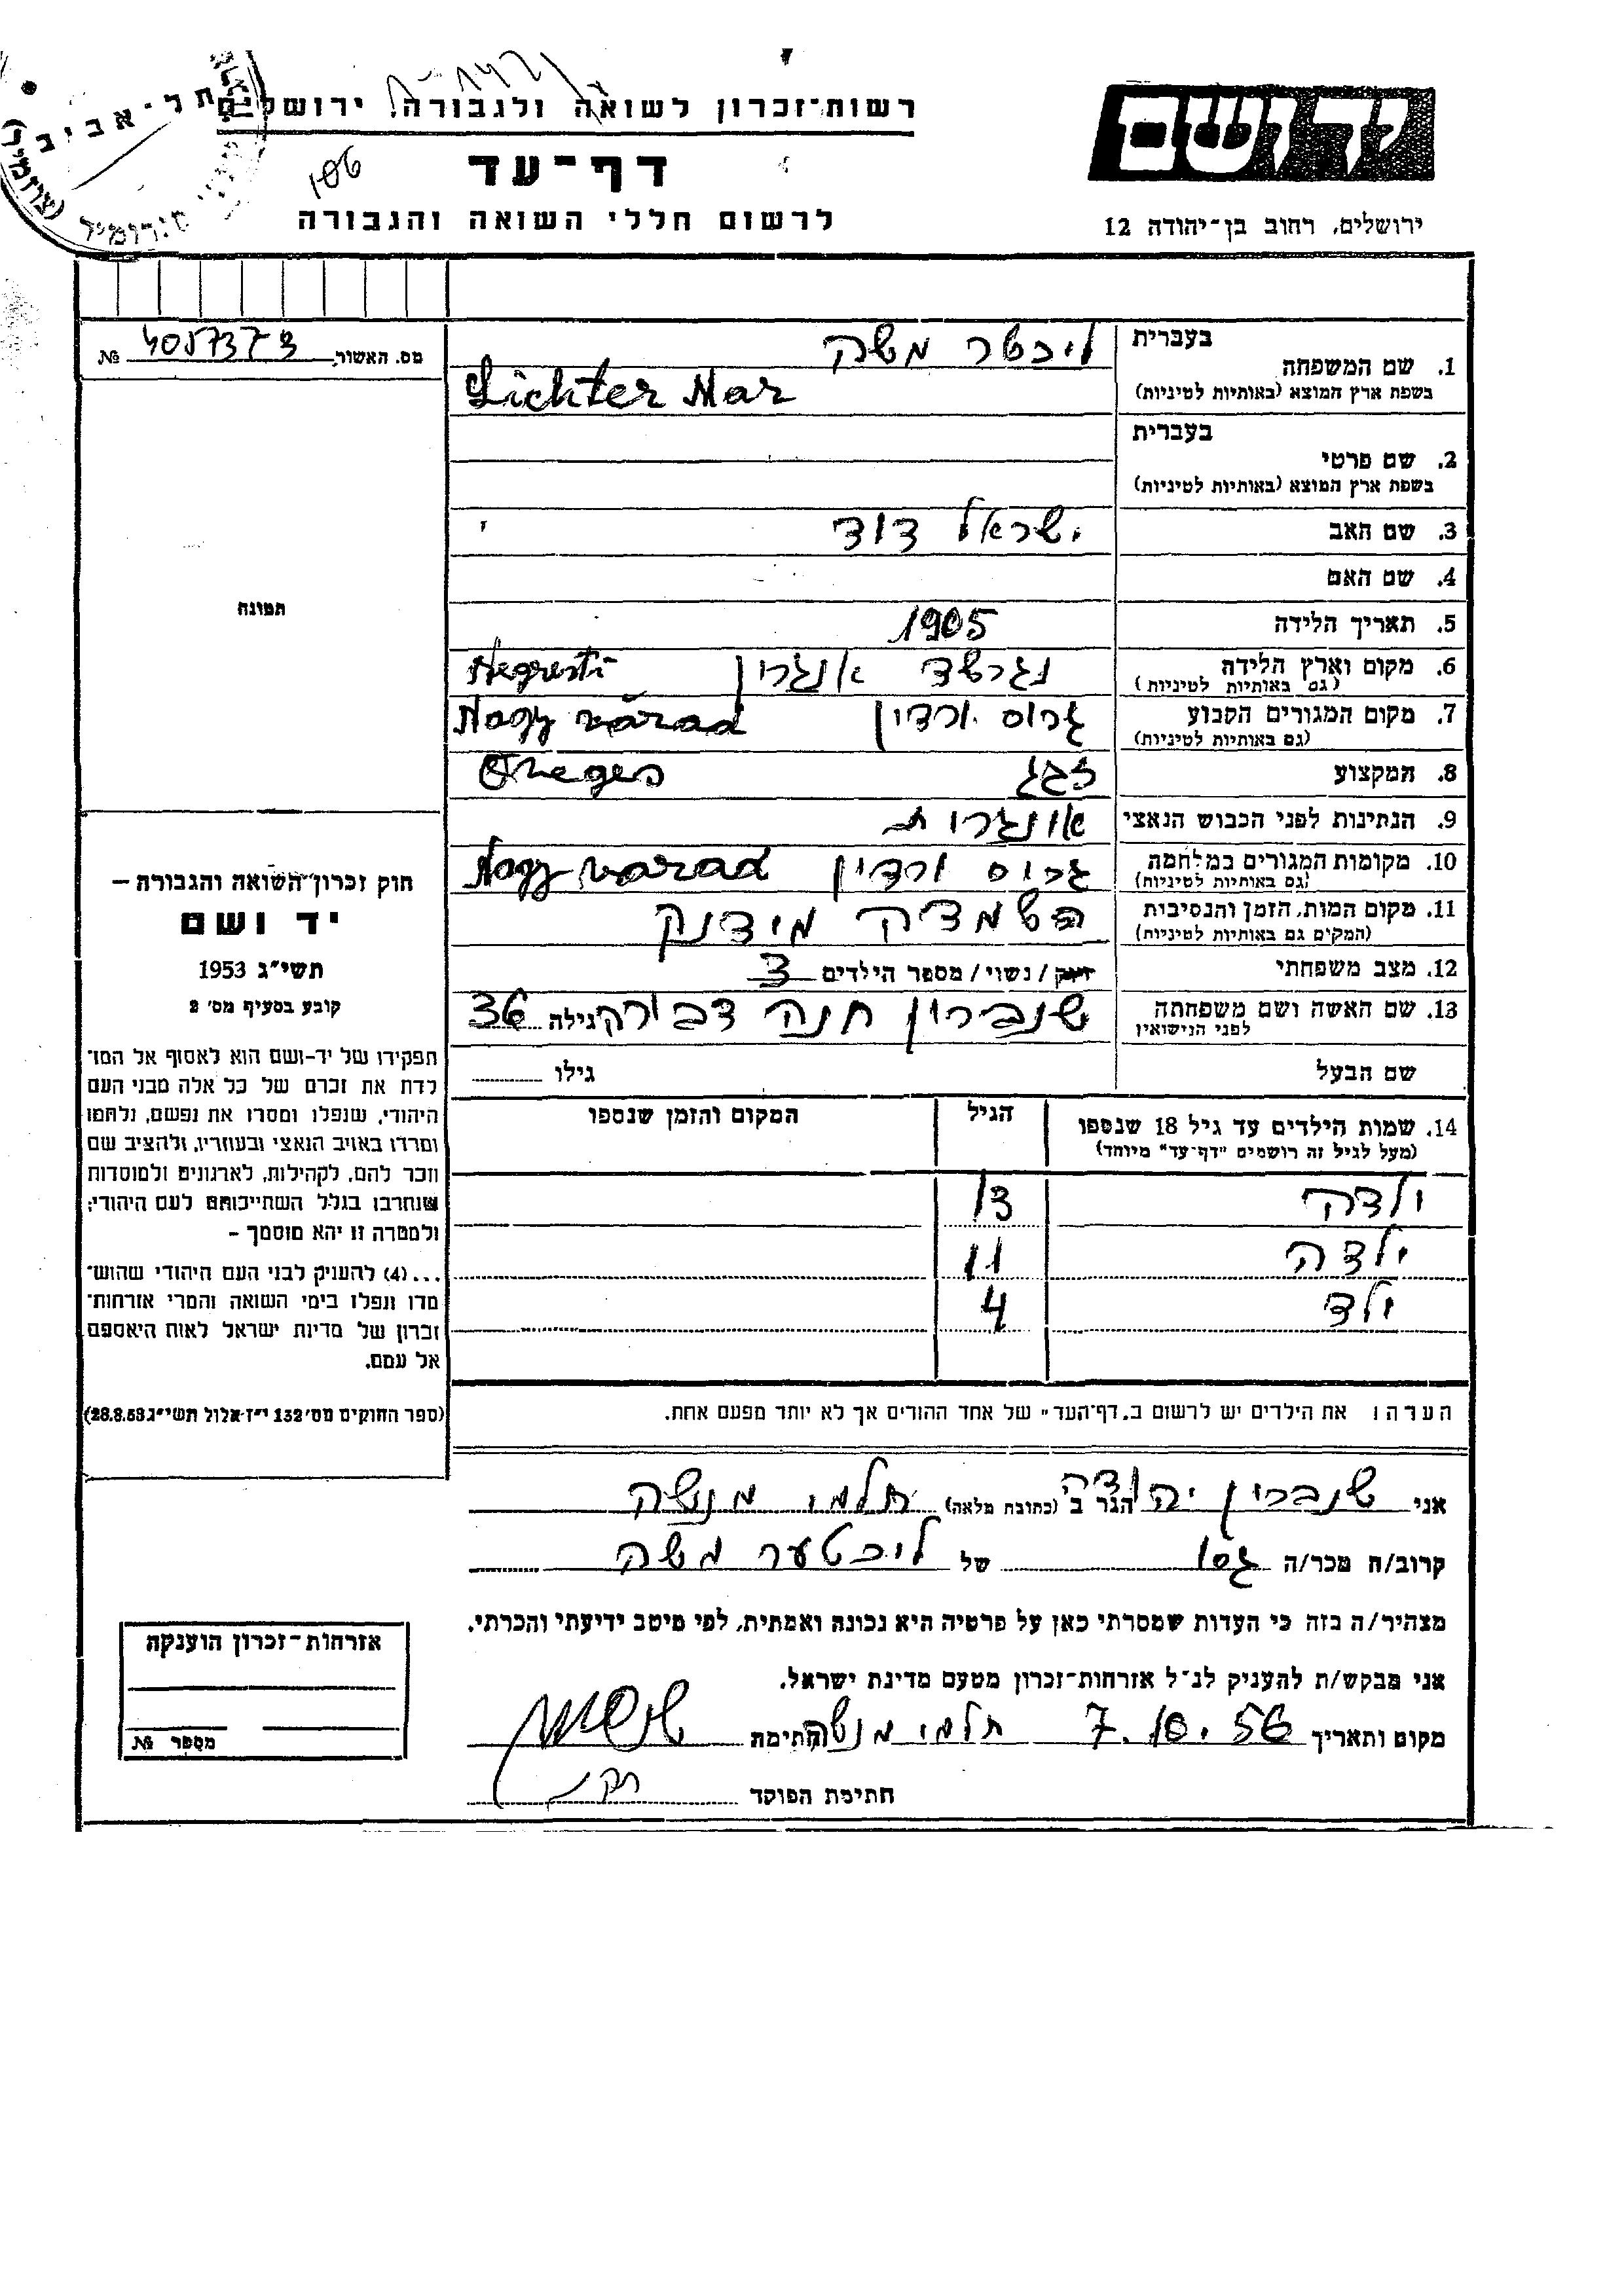 רשות-זכרון לשואה ולגבורה, ירושלים
דף-עד
לרשום חללי השואה והגבורה
ידושם
ירושלים, רחוב בן-יהודה 12
תל-אביב
106
מס. האשור № 4057373
בעברית ליכטר משה
1. שם המשפחה
בשפת ארץ המוצא (באותיות לטיניות) Lichter Mar
בעברית
2. שם פרטי
בשפת ארץ המוצא (באותיות לטיניות)
3. שם האב ישראל דוד
4. שם האם
5. תאריך הלידה 1905
6. מקום וארץ הלידה נגרשד אונגרן Negresti
(גם באותיות לטיניות)
7. מקום המגורים הקבוע גרוס ורדין Nagy várad
(גם באותיות לטיניות)
8. המקצוע זגג
9. הנתינות לפני הכבוש הנאצי אונגרות
10. מקומות המגורים במלחמה גרוס ורדין Nagy varad
(גם באותיות לטיניות)
11. מקום המות, הזמן והנסיבות השמדה מידנק
(המקום גם באותיות לטיניות)
12. מצב משפחתי רווק / נשוי / מספר הילדים 3
13. שם האשה ושם משפחתה שנברון חנה דבורה גילה 36
לפני הנישואין
שם הבעל גילו
14. שמות הילדים עד גיל 18 שנספו הגיל המקום והזמן שנספו
(מעל לגיל זה רושמים "דף-עד" מיוחד)
ילדה 13
ילדה 11
ילד 4
הערה: את הילדים יש לרשום ב"דף-העד" של אחד ההורים אך לא יותר מפעם אחת.
אני שנברון יהודה הגר ב (כתובת מלאה) תלמי מנשה
קרוב/ה מכר/ה גסו של ליכטער משה
מצהיר/ה בזה כי העדות שמסרתי כאן על פרטיה היא נכונה ואמתית, לפי מיטב ידיעתי והכרתי.
אני מבקש/ת להעניק לנ"ל אזרחות-זכרון מטעם מדינת ישראל.
מקום ותאריך 7.10.56 תלמי מנשה חתימת
חתימת הפוקד
תמונה
חוק זכרון השואה והגבורה –
יד ושם
תשי"ג 1953
קובע בסעיף מס' 2
תפקידו של יד-ושם הוא לאסוף אל המו-
לדת את זכרם של כל אלה מבני העם
היהודי, שנפלו ומסרו את נפשם, נלחמו
ומרדו באויב הנאצי ובעוזריו, ולהציב שם
וזכר להם, לקהילות, לארגונים ולמוסדות
שנחרבו בגלל השתייכותם לעם היהודי;
ולמטרה זו יהא מוסמך –
...(4) להעניק לבני העם היהודי שהוש-
מדו ונפלו בימי השואה והמרי אזרחות-
זכרון של מדינת ישראל לאות היאספם
אל עמם.
(ספר החוקים מס' 132 י"ז אלול תשי"ג 28.8.53)
אזרחות-זכרון הוענקה
מספר №